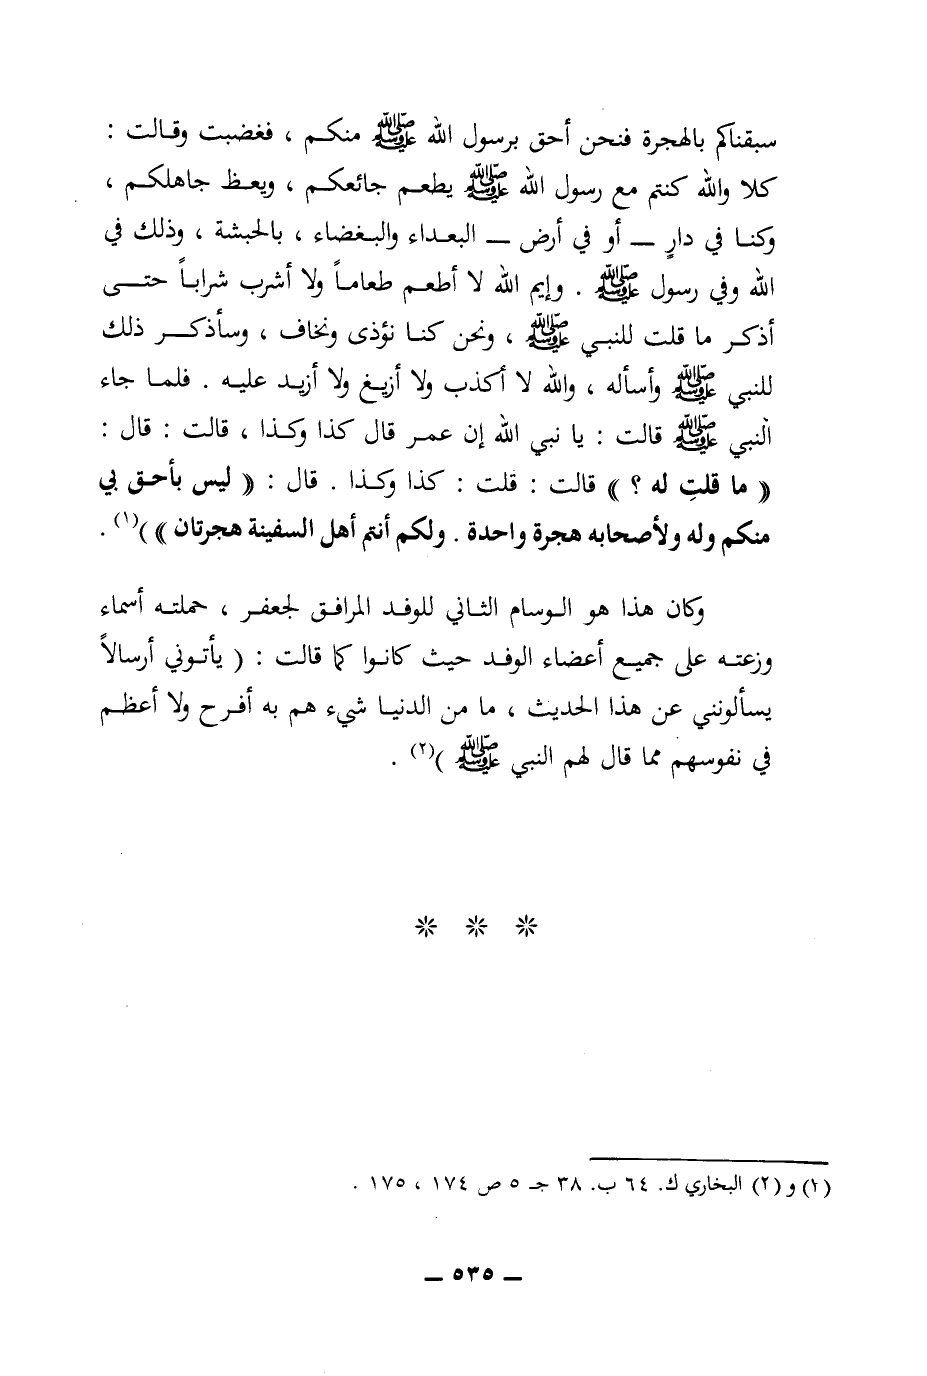 سبقناكم بالهجرة فنحن أحق برسول الله ﷺ منكم ، فغضبت وقالت :
كلا والله كنتم مع رسول الله ﷺ يطعم جائعكم ، ويعظ جاهلكم ،
وكنا في دارٍ ــ أو في أرض ــ البعداء والبغضاء ، بالحبشة ، وذلك في
الله وفي رسول ﷺ . وإيم الله لا أطعم طعاماً ولا أشرب شراباً حتى
أذكر ما قلت للنبي ﷺ ، ونحن كنا نؤذى ونخاف ، وسأذكر ذلك
للنبي ﷺ وأسأله ، والله لا أكذب ولا أزيغ ولا أزيد عليه . فلما جاء
النبي ﷺ قالت : يا نبي الله إن عمر قال كذا وكذا ، قالت : قال :
« ما قلتِ له ؟ » قالت : قلت : كذا وكذا . قال : « ليس بأحق بي
منكم وله ولأصحابه هجرة واحدة . ولكم أنتم أهل السفينة هجرتان » )(١) .
وكان هذا هو الوسام الثاني للوفد المرافق لجعفر ، حملته أسماء
وزعته على جميع أعضاء الوفد حيث كانوا كما قالت : ( يأتوني أرسالاً
يسألونني عن هذا الحديث ، ما من الدنيا شيء هم به أفرح ولا أعظم
في نفوسهم مما قال لهم النبي ﷺ )(٢) .
(١) و (٢) البخاري ك. ٦٤ ب. ٣٨ جـ ٥ ص ١٧٤ ، ١٧٥ .
ــ ٥٣٥ ــ